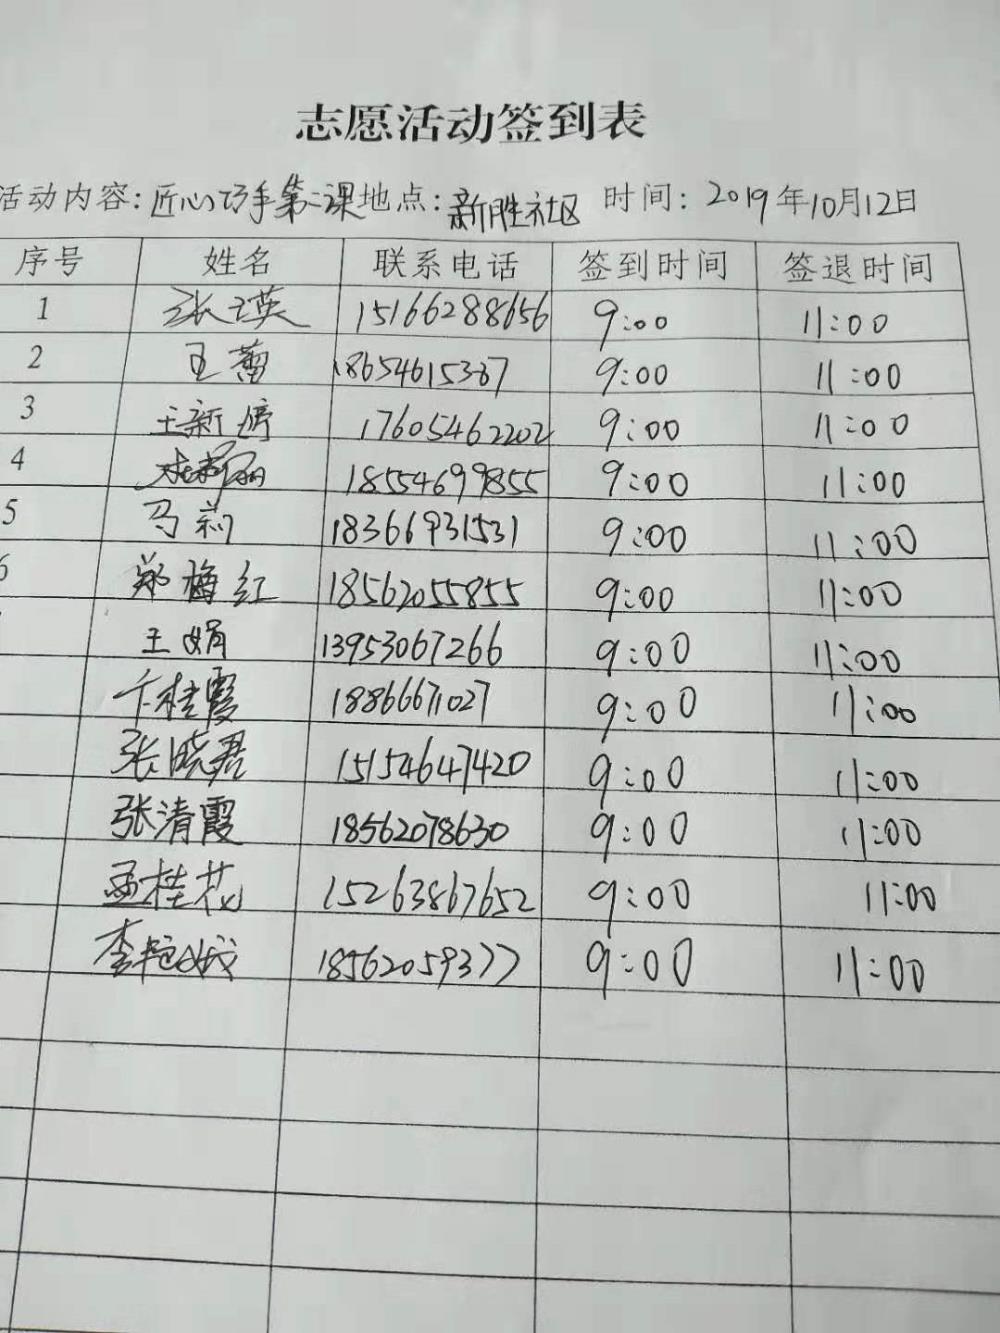 志愿活动签到表
活动内容:匠心巧手第二课地点:新胜社区 时间:2019年10月12日
序号 姓名 联系电话 签到时间 签退时间
1 张瑛 15166288656 9:00 11:00
2 王蕾 18654615387 9:00 11:00
3 王新婷 17605462202 9:00 11:00
4 18554699855 9:00 11:00
5 马莉 18366931531 9:00 11:00
6 郑梅红 18562055855 9:00 11:00
王娟 13953067266 9:00 11:00
卞桂霞 18866671027 9:00 11:00
张晓君 15154647420 9:00 11:00
张清霞 18562078630 9:00 11:00
孟桂花 15263867652 9:00 11:00
李艳娥 18562059377 9:00 11:00